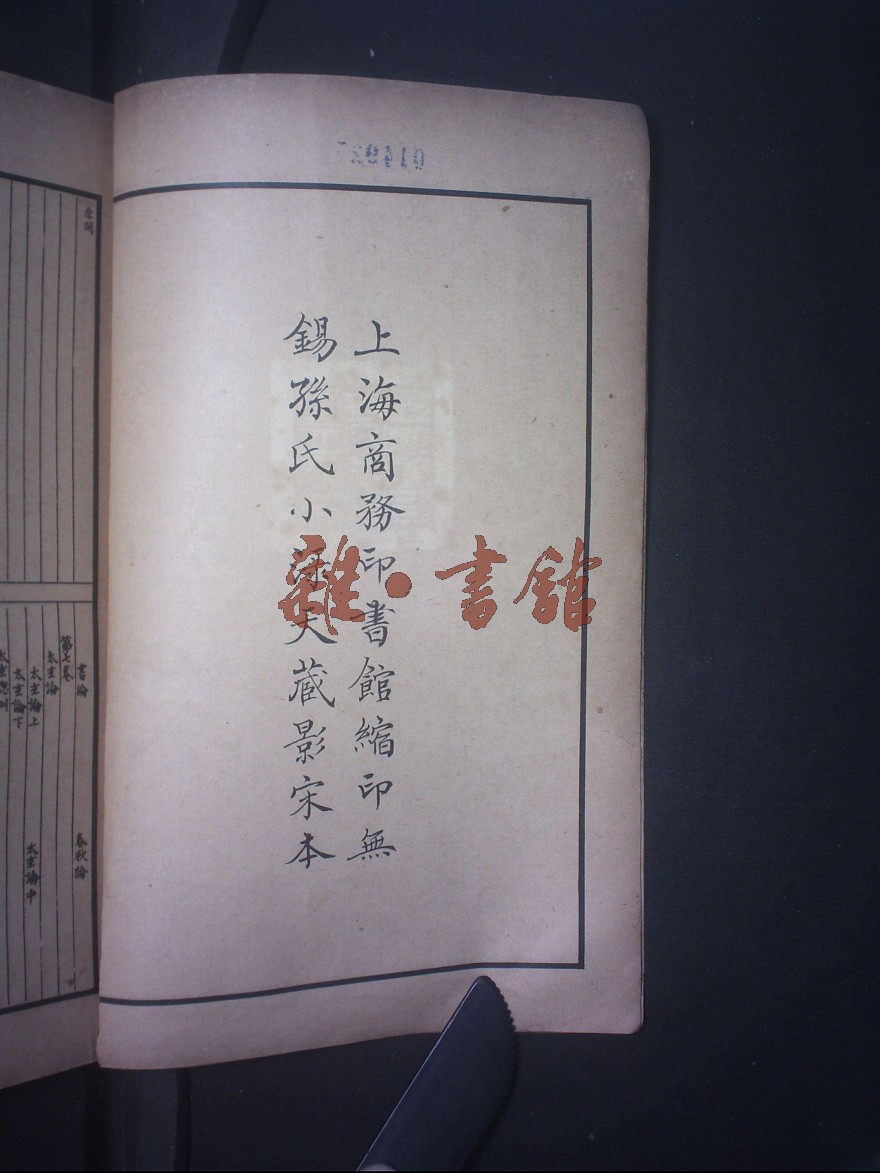 014027
上海商務印書館縮印無
錫孫氏小淥天藏影宋本
雜·書館
書論
春秋論
第七卷
太玄論
太玄論上
太玄論中
太玄論下